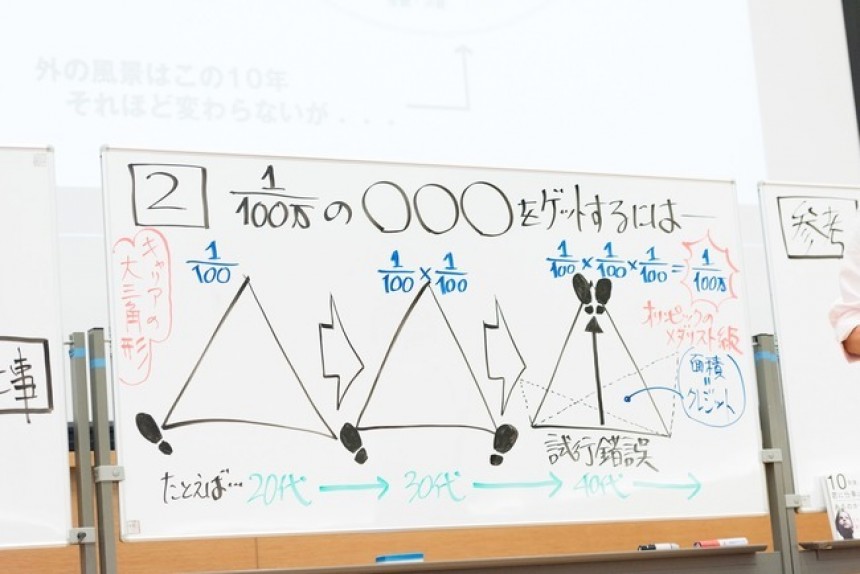 外の風景はこの10年
それほど変わらないが...
2 1/100万の○○○をゲットするには―
キャリアの
大三角形
1/100
1/100×1/100
1/100×1/100×1/100=1/100万
オリンピックの
メダリスト級
面積
=
クレジット
試行錯誤
たとえば…20代→30代→40代→
事
参考
10